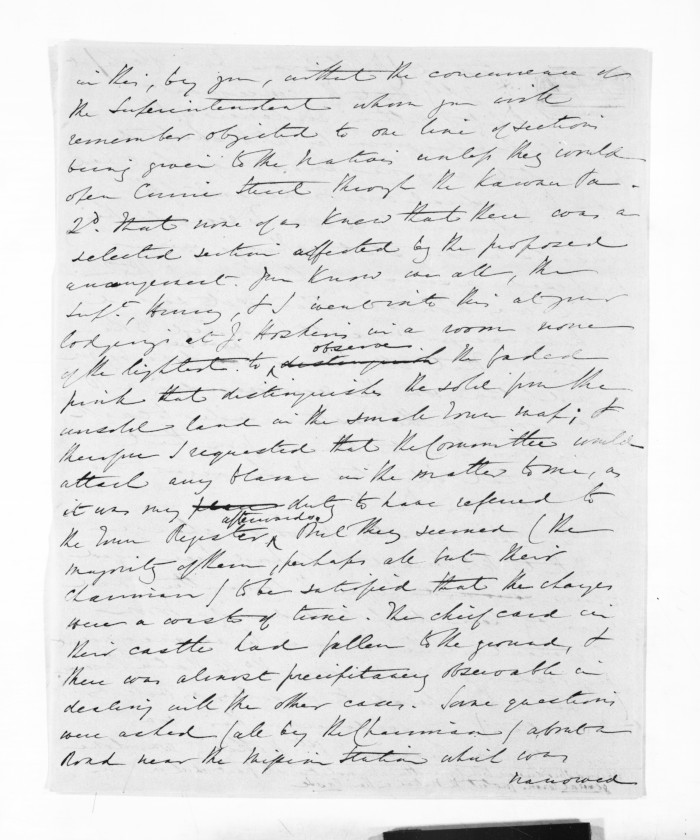 in this, by you, without the concurrence of
the Superintendent whom you will
remember objected to one line of sections
being given to the Natives unless they would
open Currie Street through the Kawau Pa -
2d. That none of us knew that there was a
selected section affected by the proposed
arrangement. You know we all, the
Supt., Henry, & I went into this at your
lodgings at J. Hoskins in a room none
of the lightest to observe distinguish the faded
pink that distinguishes the sold from the
unsold land in the small Town map; &
therefore I requested that the Committee would
attach any blame in the matter to me, as
it was my duty to have referred to
the Town Register afterwards. But they seemed (the
majority of them, perhaps all but their
chairman) to be satisfied that the charges
were a waste of time. The chief card in
their castle had fallen to the ground, &
there was almost precipitancy observable in
dealing with the other cases. Some questions
were asked (all by the Chairman) about a
Road near the Mission Station which was
narrowed